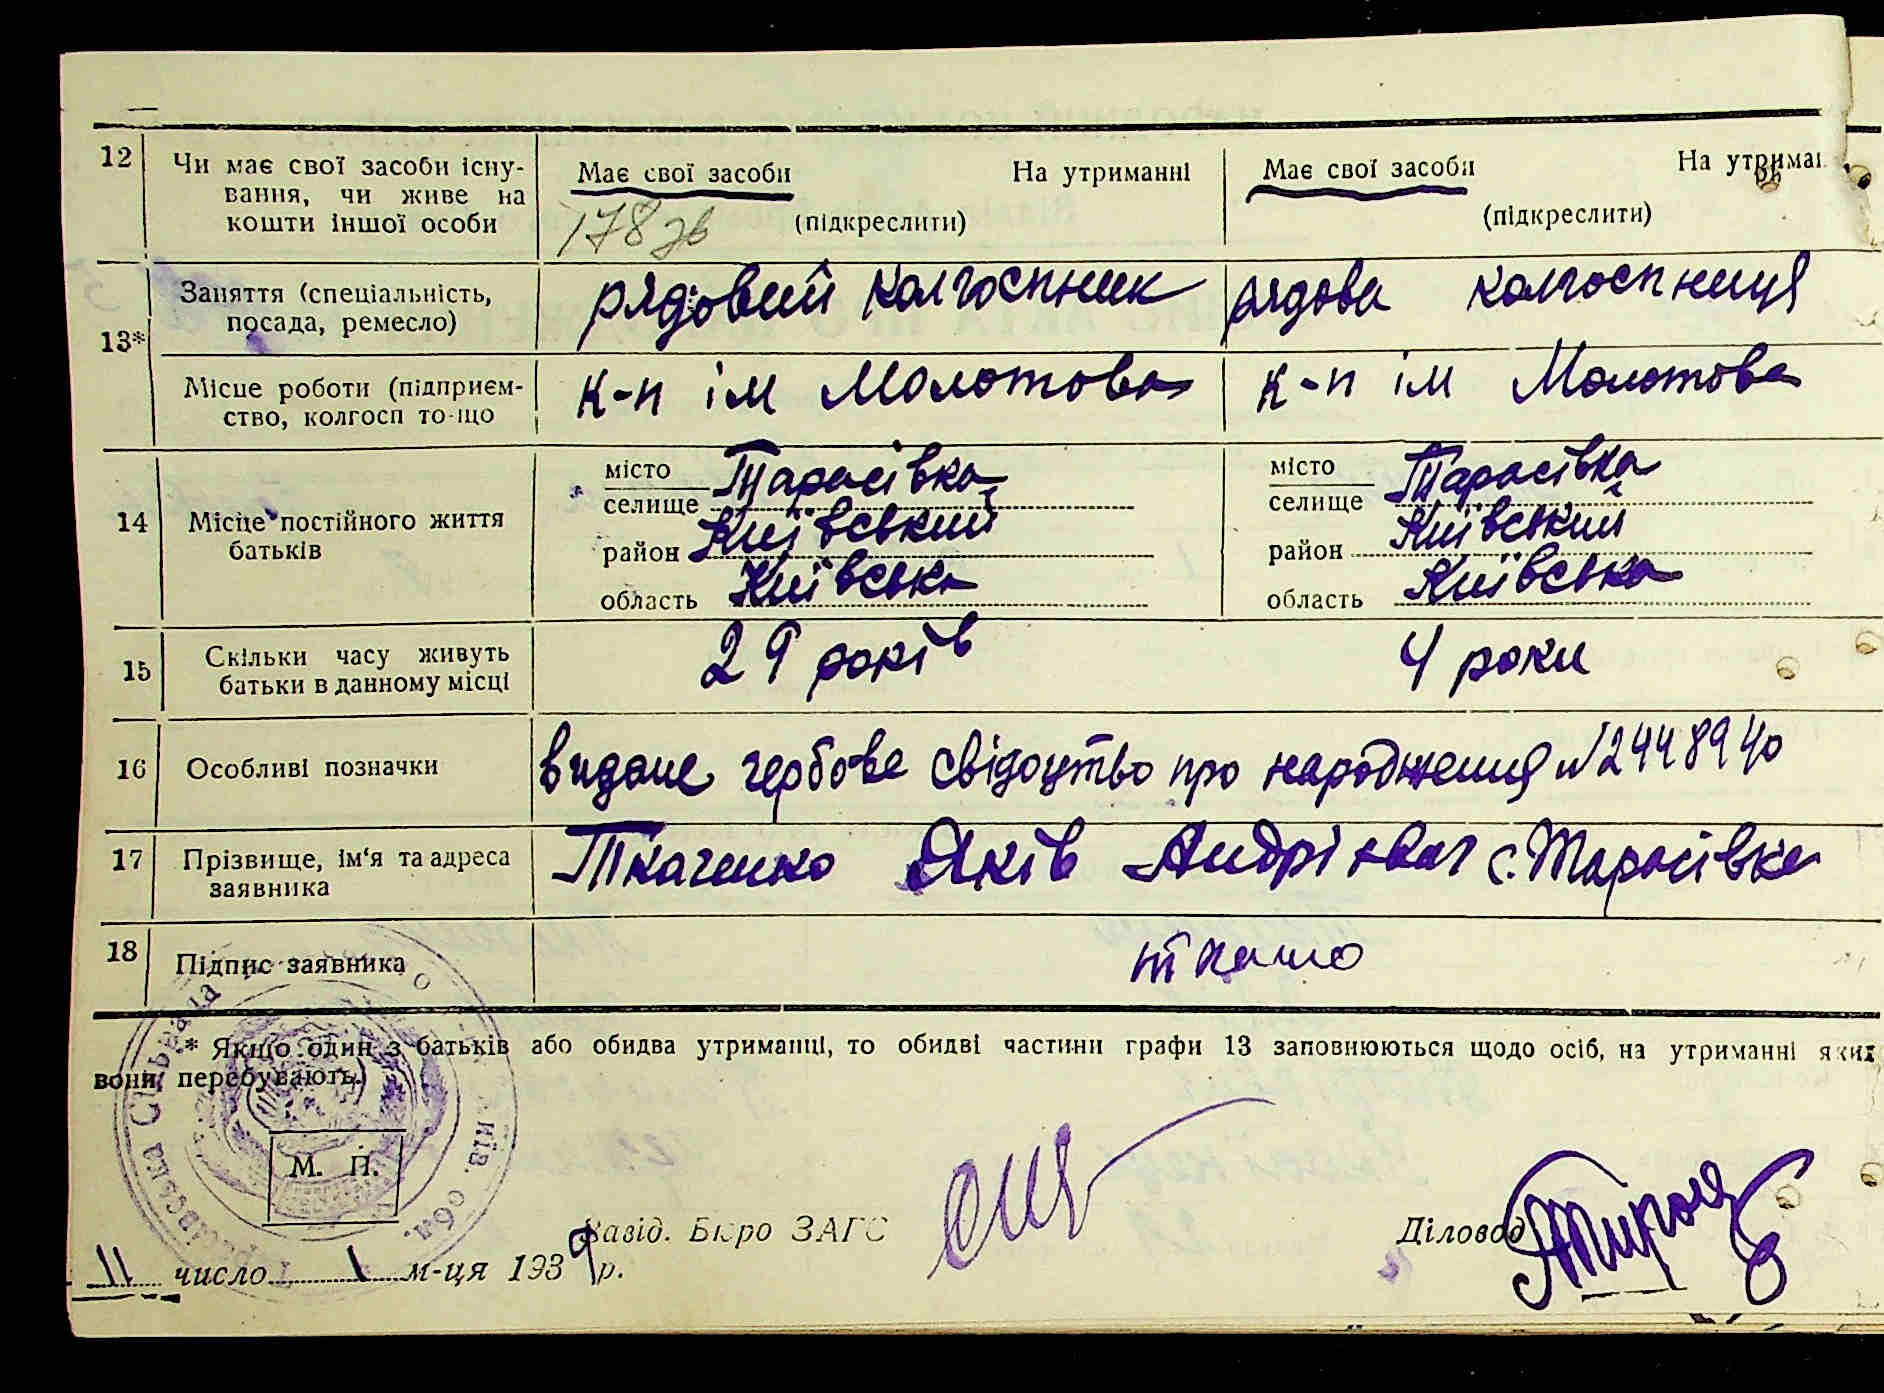 12 Чи має свої засоби існу- Має свої засоби На утриманні Має свої засоби На утриман
вання, чи живе на
кошти іншої особи 178 зв (підкреслити) (підкреслити)
13* Заняття (спеціальність, рядовий колгоспник рядова колгоспниця
посада, ремесло)
Місце роботи (підприєм- к-п ім Молотова к-п ім Молотова
ство, колгосп то-що
14 Місце постійного життя
батьків
місто Тарасівка місто Тарасівка
селище селище
район Київський район Київський
область Київська область Київська
15 Скільки часу живуть 29 років 4 роки
батьки в данному місці
16 Особливі позначки видане гербове свідоцтво про народження №2448940
17 Прізвище, ім'я та адреса Ткаченко Яків Андрієвич с. Тарасівка
заявника
18 Підпис заявника
* Якщо один з батьків або обидва утриманці, то обидві частини графи 13 заповнюються щодо осіб, на утриманні яких
вони перебувають.
М. П.
Завід. Бюро ЗАГС Діловод
11 число 1 м-ця 1939 р.